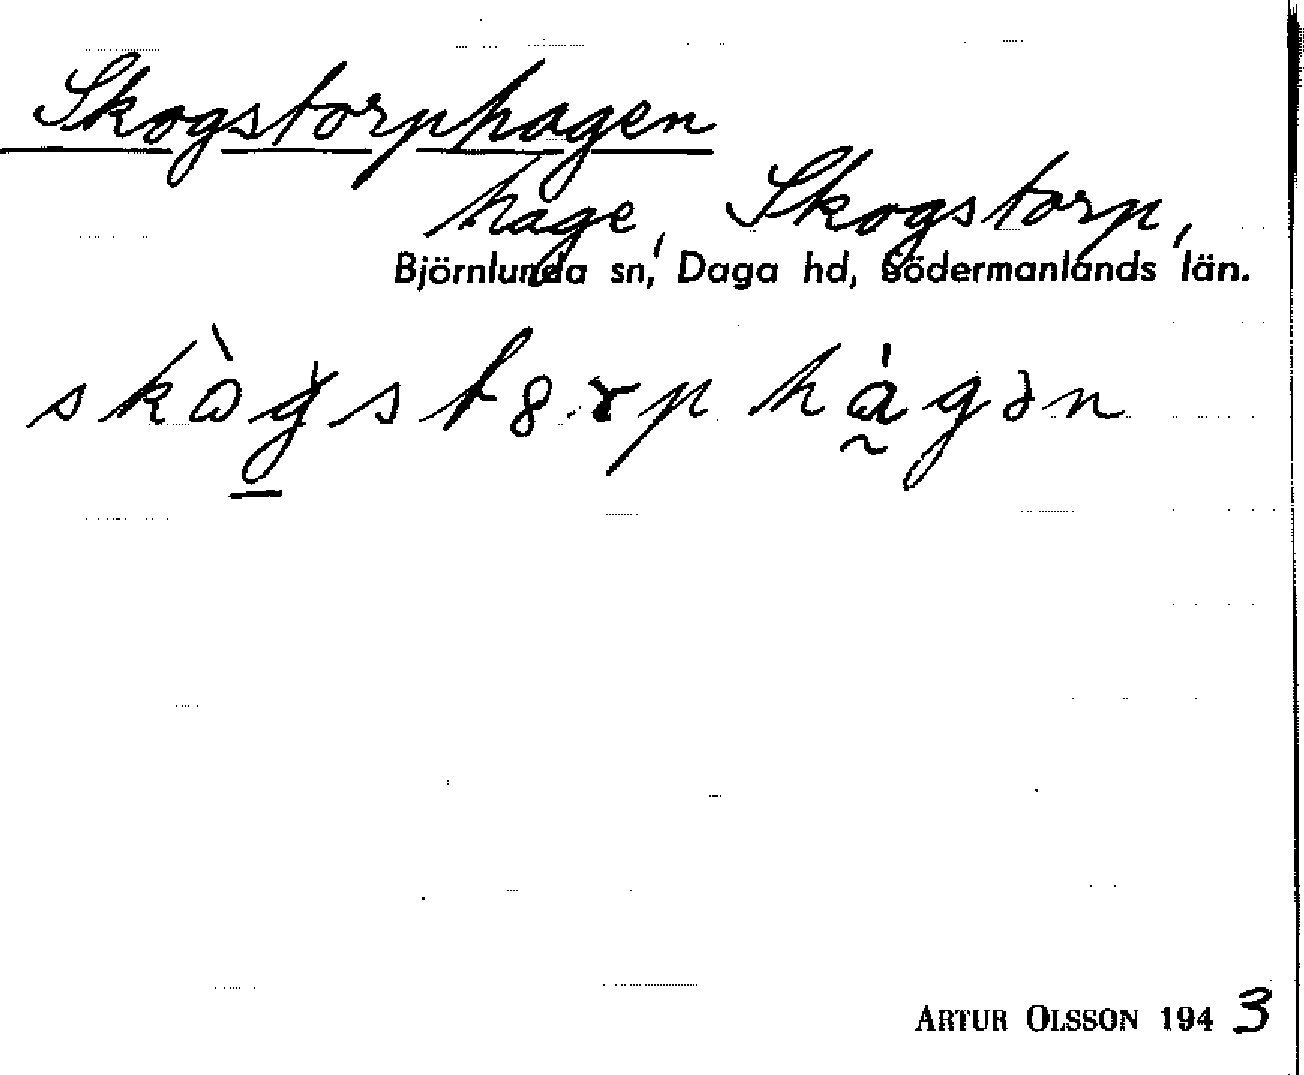 Skogstorphagen
hage, Skogstorp,
Björnlunda sn, Daga hd, Södermanlands län.
ARTUR OLSSON 1943